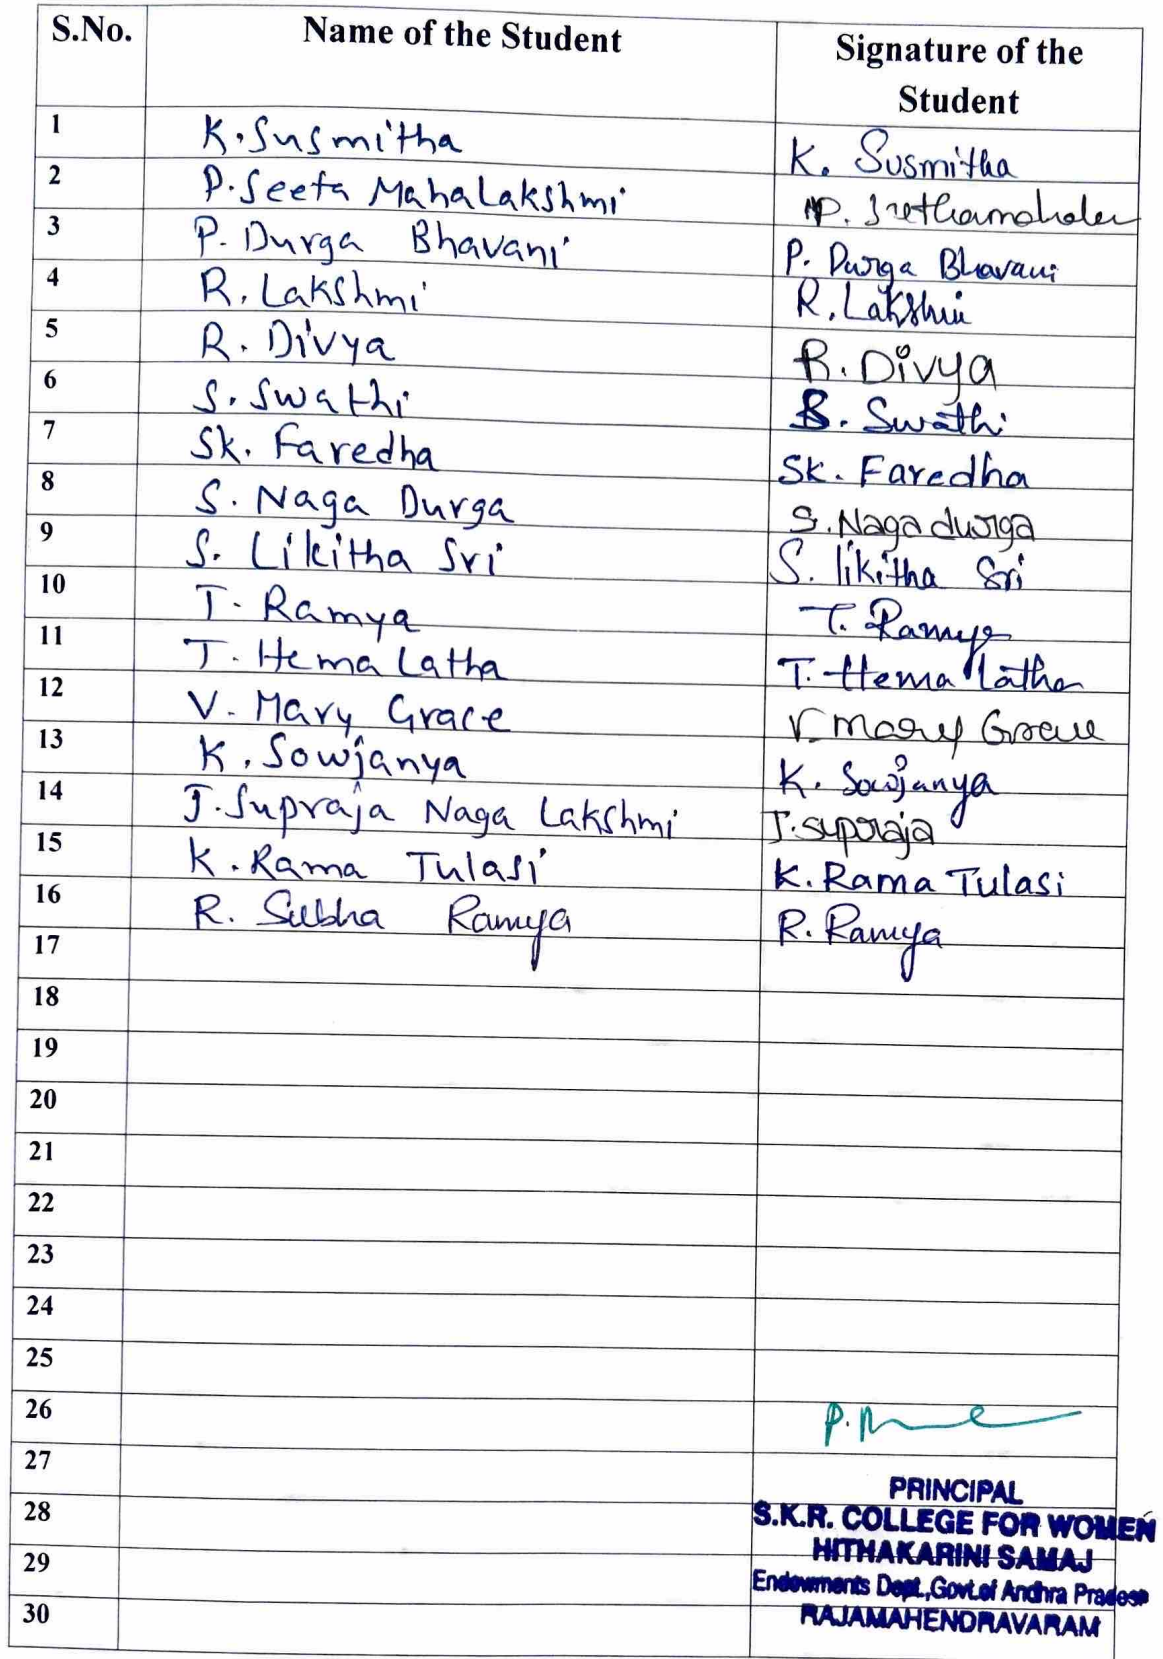 S.No. Name of the Student Signature of the
Student
1 K. Susmitha K. Susmitha
2 P. Seeta Mahalakshmi P.
3 P. Durga Bhavani P. Durga Bhavani
4 R. Lakshmi R. Lakshmi
5 R. Divya R. Divya
6 S. Swathi S. Swathi
7 Sk. Faredha Sk. Faredha
8 S. Naga Durga S. Naga durga
9 S. Likitha Sri S. likitha Sri
10 T. Ramya T. Ramya
11 T. Hema Latha T. Hema Latha
12 V. Mary Grace V. Mary Grace
13 K. Sowjanya K. Sowjanya
14 J. Supraja Naga Lakshmi J. supraja
15 K. Rama Tulasi K. Rama Tulasi
16 R. Subha Ramya R. Ramya
17
18
19
20
21
22
23
24
25
26 P.
27
PRINCIPAL
28 S.K.R. COLLEGE FOR WOMEN
HITHAKARINI SAMAJ
29 Endowments Dept., Govt. of Andhra Pradesh
30 RAJAMAHENDRAVARAM